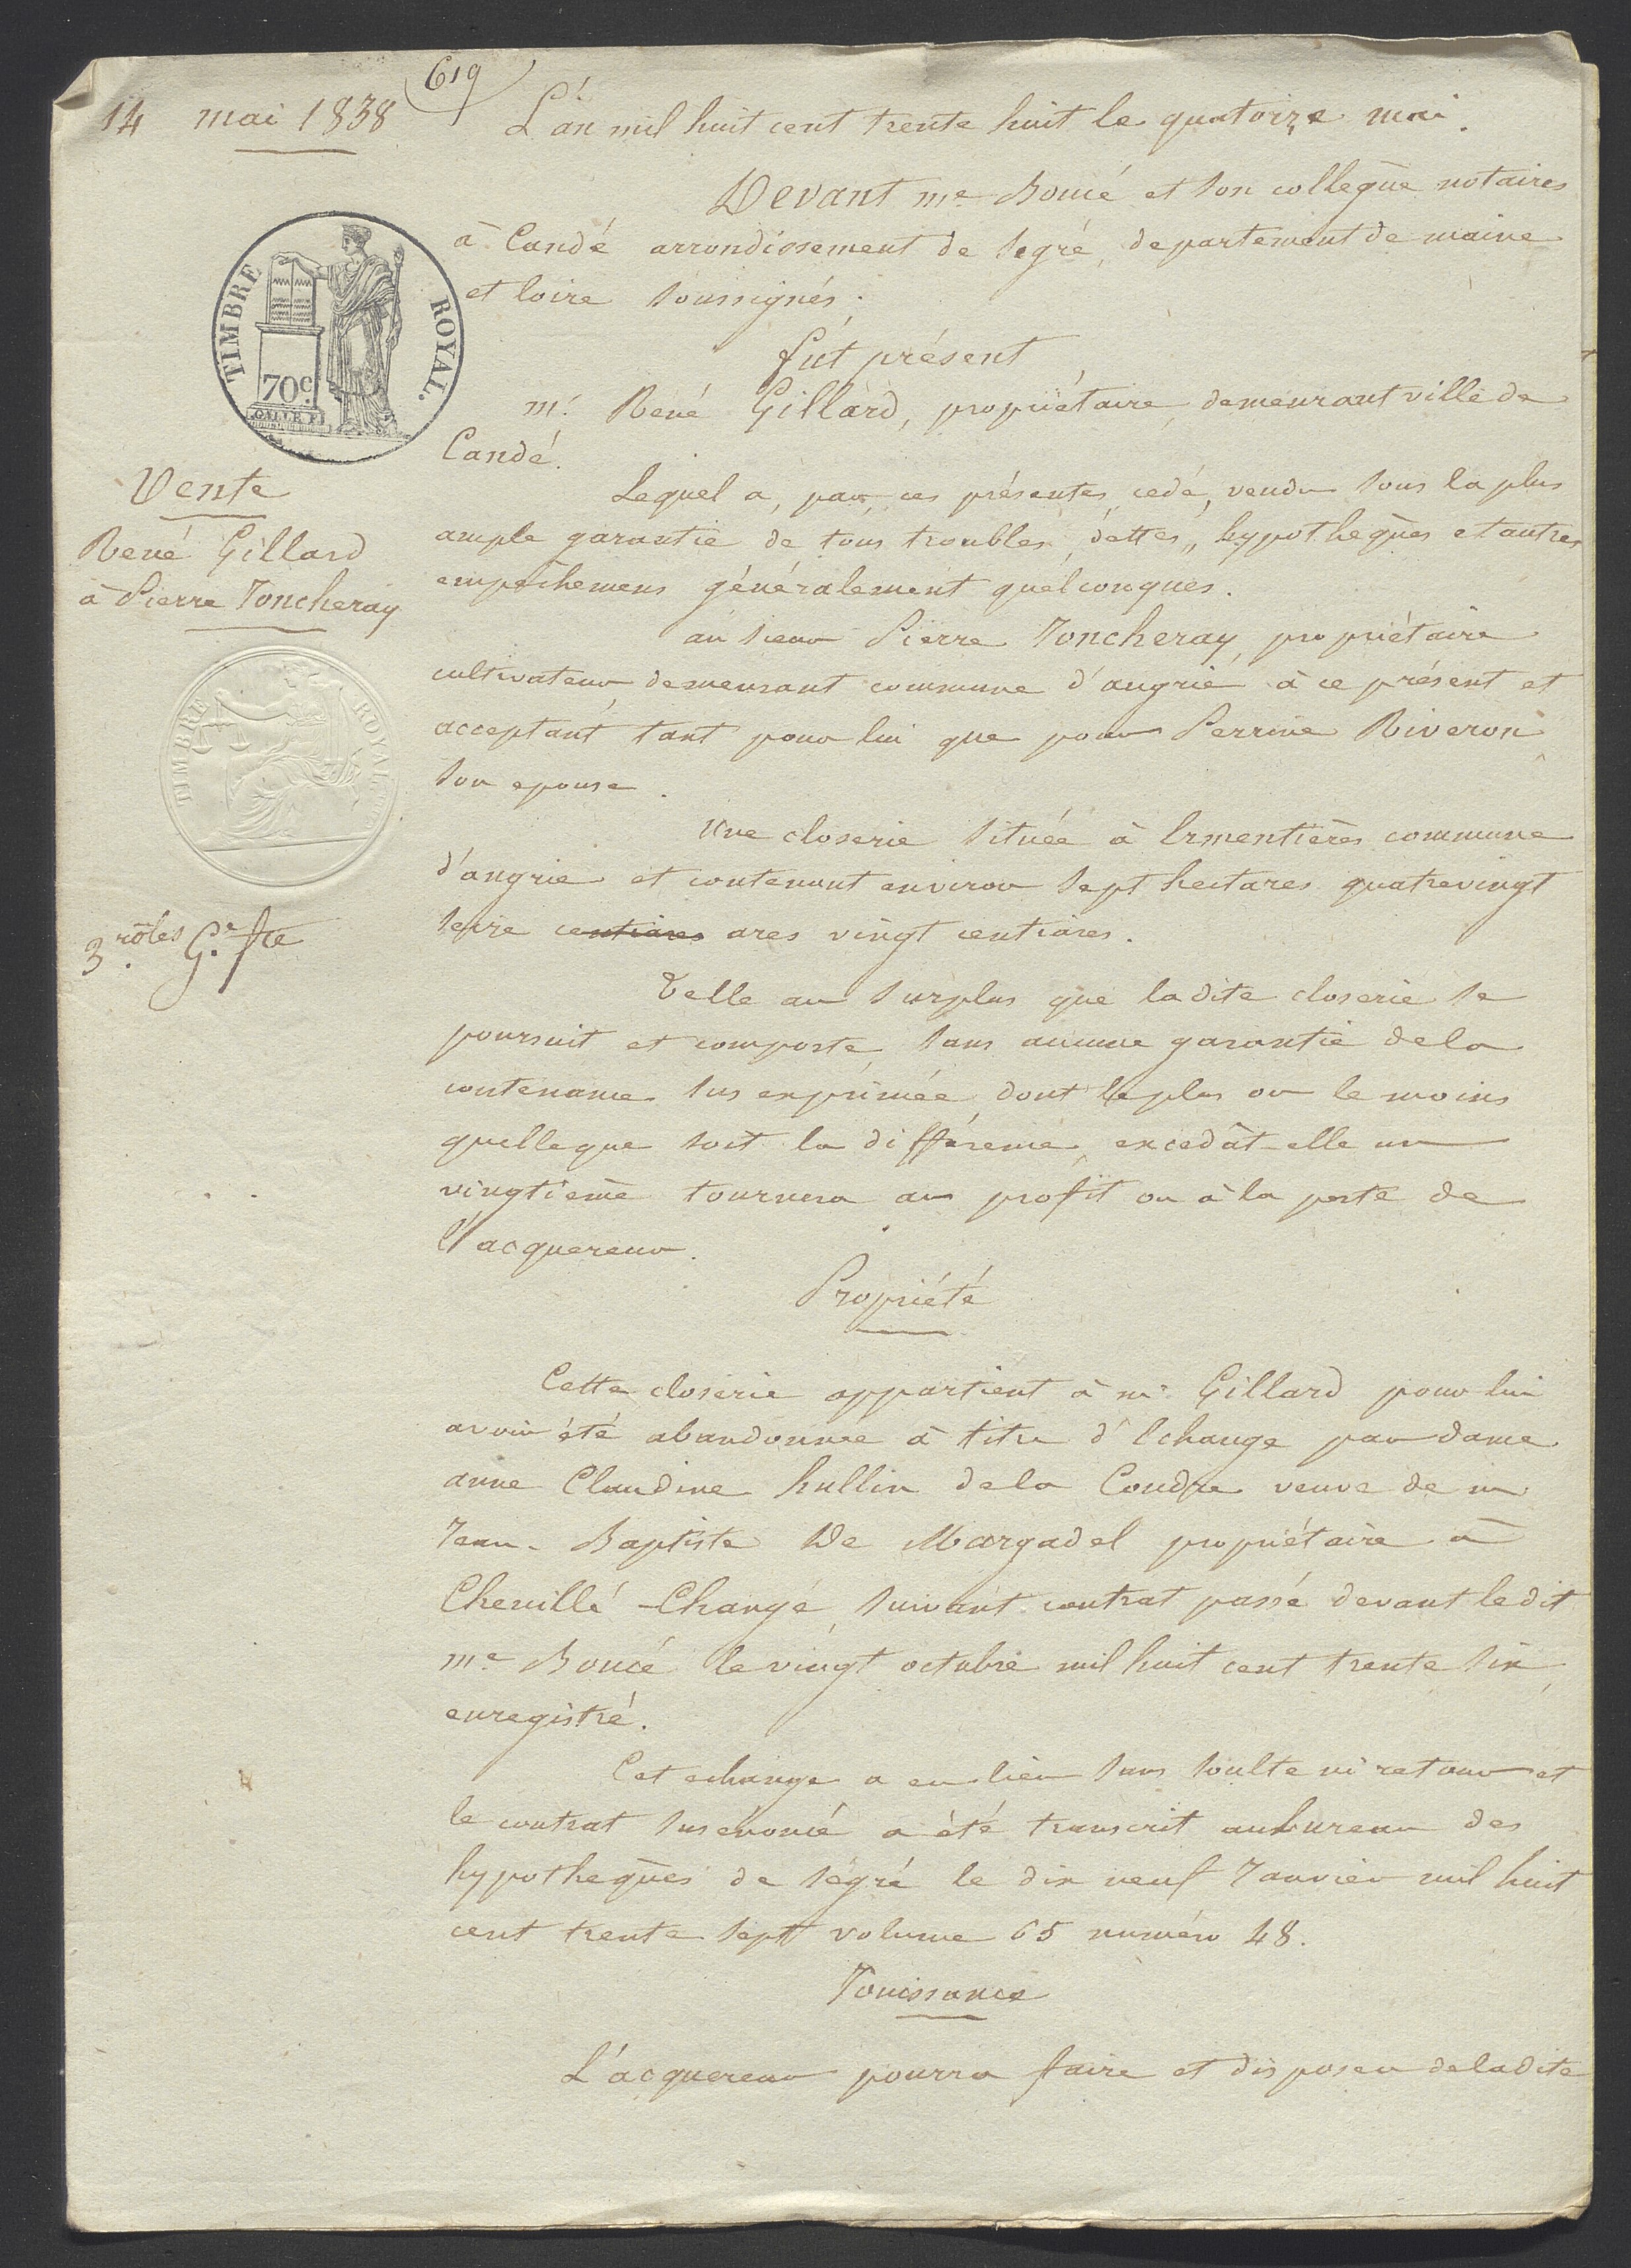 619
14 mai 1838
L'an mil huit cent trente huit le quatorze mai.
Devant me Boucé et son collegue notaires
à Candé arrondissement de segré, departement de maine
et loire soussignés.
TIMBRE ROYAL.
70c.
fut présent
mr. René Gillard, propriétaire, demeurant ville de
Candé.
Vente
René Gillard
à Pierre Joncheray
Lequel a, par ces présentes, cedé, vendu sous la plus
ample garantie de tous troubles, dettes, hypothegues et autres
empêchemens généralement quelconques.
au sieur Pierre Joncheray, propriétaire
cultivateur, demeurant commune d'angrie à ce présent et
acceptant, tant pour lui que pour Perrine Riveron
son epouse.
TIMBRE ROYAL
Une closerie située à Ermentières commune
d'angrie et contenant environ sept hectares quatrevingt
seize centiares ares vingt centiares.
3 rôles Ge. fre
Telle au surplus que ladite closerie se
poursuit et comporte sans aucune garantie dela
contenance sus exprimée, dont le plus ou le moins
quelleque soit la différence, excedât-elle un
vingtieme tournera au profit ou à la perte de
l'acquereur.
Propriété
Cette closerie appartient à mr Gillard pour lui
avoir été abandonnée à titre d'Echange par dame
anne Claudine hullin dela Coudre veuve de mr
Jean-Baptiste De Margadel propriétaire à
Chenillé-Changé, suivant contrat passé devant ledit
me Boucé le vingt octobre mil huit cent trente six,
enregistré.
Cet echange a eu lieu sans soulte ni retour et
le contrat susénoncé a été transcrit aubureau des
hypotheques de segré le dix neuf Janvier mil huit
cent trente sept volume 65 numéro 48.
Jouissance
L'acquereur pourra faire et disposer deladite